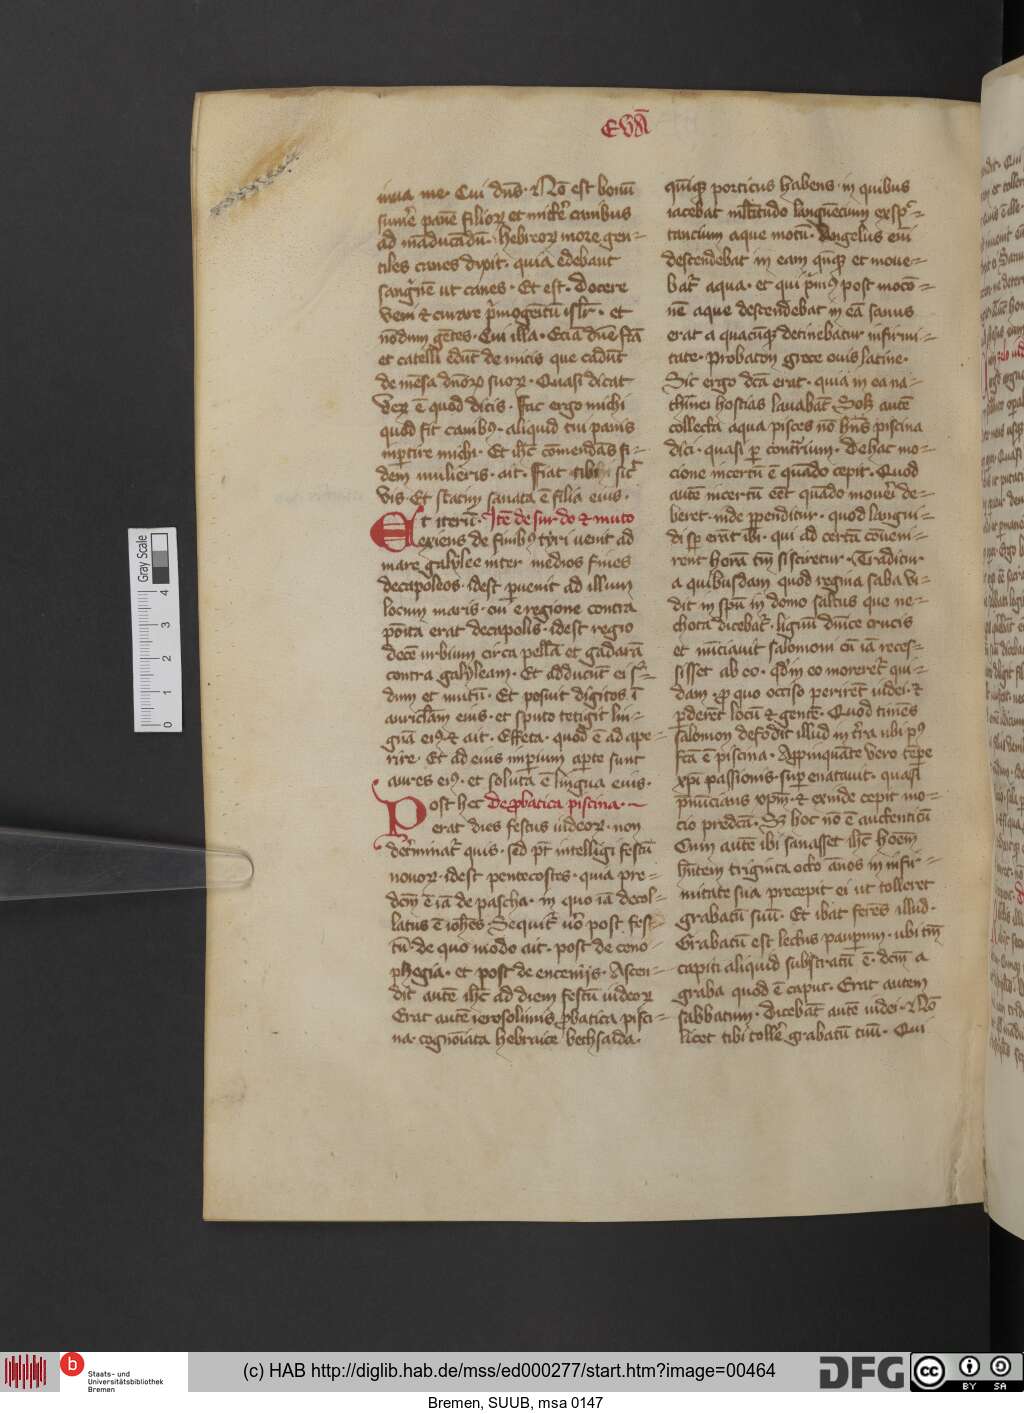 Eva̅
iuua me · Cui dn̅s · No̅ est bonu̅
sume̅ pane̅ filioꝝ et mitte̅ canibus
ad ma̅duca̅du̅ · hebreoꝝ more gen=
tiles canes dixit · quia edebant
sangu̅ne̅ ut canes · Et est · Docere
vem̅ ⁊ curare p̅mogeni̅tu̅ isrl̅ · et
no̅dum ge̅tes · Cui illa · Ecia̅ dn̅e
et catelli edu̅t de micis que cadu̅t
de me̅sa dn̅oꝝ suoꝝ · Quasi dicat
veꝝ e̅ quod dicis · Fac ergo michi
quod fit canibꝫ · aliquid tui panis
inp̲tire michi · Et ih̅c co̅menda̅s fi=
dem mulieris · ait · Fiat tibi sic̅
vis · Et statim sanata e̅ filia eius ·
Et iteru̅ · Ite̅ de surdo ⁊ muto
exiens de finibꝫ tyri uenit ad
mare galylee inter medios fines
decapoleos · idest p̲uenit ad illum
locum maris · cui̅ e regione contra
po̅ita erat decapolis · idest regio
dece̅ urbium circa pella̅ et gadara̅
contra galyleam · Et adducu̅t ei s̅r=
dum et mutu̅ · Et posuit digitos i̅
auricl̅am eius · et sputo tetigit lin=
gua̅ eiꝰ ⁊ ait · Effeta · quod e̅ ad ape=
rire · Et ad eius inp̲ium ap̲te sunt
aures eiꝰ · et soluta e̅ lingua euis ·
Post hec De ꝓbatica piscina ·
erat dies festus iudeoꝝ · non
det̅minat̅ quis · sed p̅t intelligi festu̅
nouoꝝ · idest pentecostes · quia pre=
dc̅m e̅ ia̅ de pascha · in quo ia̅ decol=
latus e̅ ioh̅es Sequit̅ uo̅ post fes
tu̅ · de quo modo ait · post de ceno=
phegia · et post de encenijs · Ascen=
dit aute̅ ih̅c ad diem festu̅ iudeoꝝ
Erat aute̅ ierosolimis ꝓbatica pisci=
na · cogno̅iata hebraice bethsaida ·
qui̅qꝫ porticus habens · in quibus
iacebat ml̅titudo langue̅cium exsp̅=
tancium aque motu̅ · Angelus eni̅
descendebat in eam qu̅qꝫ et moue=
bat̅ aqua · et qui p̅mꝰ post moco̅=
ne̅ aque descendebat in ea̅ sanus
erat a quacu̅qꝫ detinebatur infirmi=
tate · Probaton grece ouis latine ·
Sic ergo dc̅a erat · quia in ea na=
thi̅nei hostias lauaba̅t
collecta aqua pisces no̅ hn̅s piscina
dici · quasi p̲ contr̅rium · De hac mo=
cione incertu̅ e̅ qua̅do cepit · Quod
aute̅ incertu̅ e̅et qua̅do moueri̅ de=
beret · inde p̲penditur · quod langui=
di sp̲ era̅t ibi · qui ad certa̅ co̅ueni=
rent hora̅ tm̅ si sciretur · Traditur
a quibusdam quod regina saba vi=
dit in sp̅u in domo saltus que ne=
chota dicebat̅ · lignu̅ dn̅ice crucis
et nu̅ciauit salomoni cu̅ ia̅ reces=
sisset ab eo · qd̅ in eo moreret̅ qui=
dam · ꝓ quo occiso perire̅t iudei · ⁊
p̲dere̅t locu̅ ⁊ gente̅ · Quod time̅s
salomon defodit illud in t̅rra ubi pꝰ
fc̅a e̅ piscina · Appinqua̅te vero te̅pe
xp̅i passionis · sup̲ enatauit · quasi
p̅nu̅cians xp̅m · ⁊ exinde cepit mo=
cio predc̅a · Sꝫ hoc no̅ e̅ aucte̅nticu̅
Cum aute̅ ibi sanasset ih̅c ho̅em
hn̅tem triginta octo a̅nos in infir=
mitate sua precepit ei ut tolleret
grabatu̅ suu̅ · Et ibat fere̅s illud ·
Grabatu̅ est lectus paup̲um · ubi tm̅
capiti aliquid substratu̅ e̅ · dc̅m a
graba quod e̅ caput · Erat autem
sabbatum · dicebat̅ aute̅ iudei · No̅
licet tibi tolle̅ grabatu̅ tuu̅ · Qui
Gray Scale
4
3
2
1
0
Staats- und
Universitätsbibliothek
Bremen
(c) HAB http://diglib.hab.de/mss/ed000277/start.htm?image=00464
DFG
cc BY SA
Bremen, SUUB, msa 0147